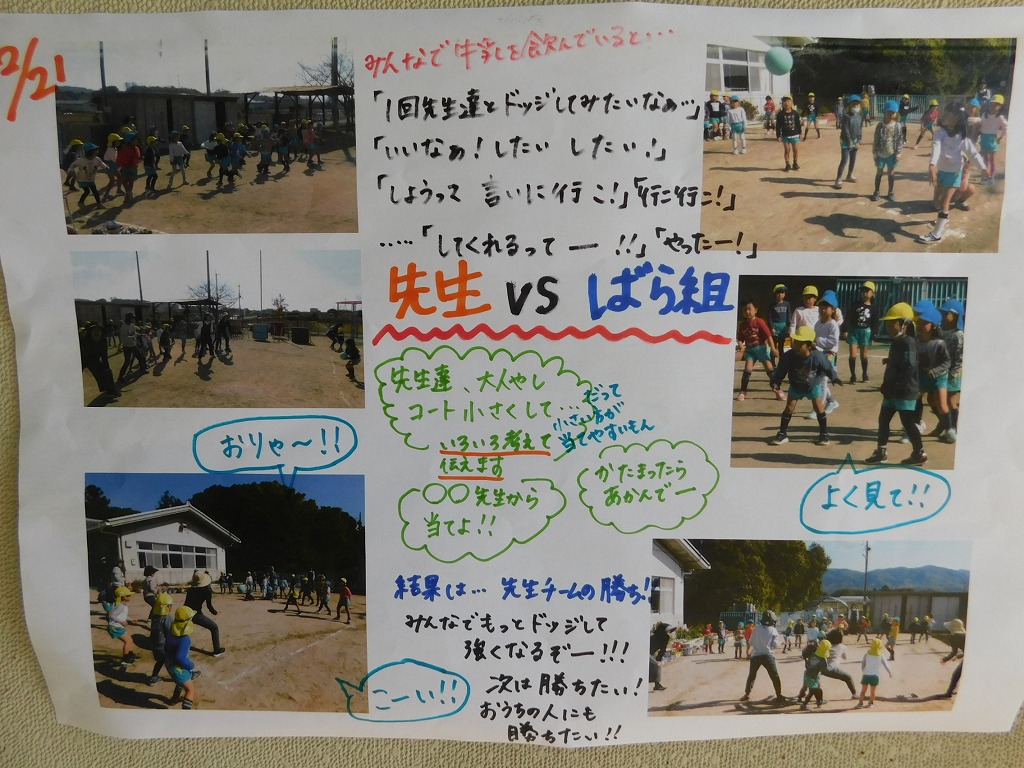 2/21
みんなで牛乳を飲んでいると・・・
「1回先生達とドッジしてみたいなぁ…」
「いいなぁ！したい したい！」
「しようって 言いに行こ！」「行こ行こ！」
・・・・・「してくれるってー！！」「やったー！」
先生 VS ばら組
先生達、大人やし
コート小さくして...
いろいろ考えて
伝えます
だって
小さい方が
当てやすいもん
おりゃ〜！！
〇〇先生から
当てよ！！
かたまったら
あかんでー
よく見て！！
結果は… 先生チームの勝ち！
みんなでもっとドッジして
強くなるぞー！！！
こーい！！
次は勝ちたい！
おうちの人にも
勝ちたい！！